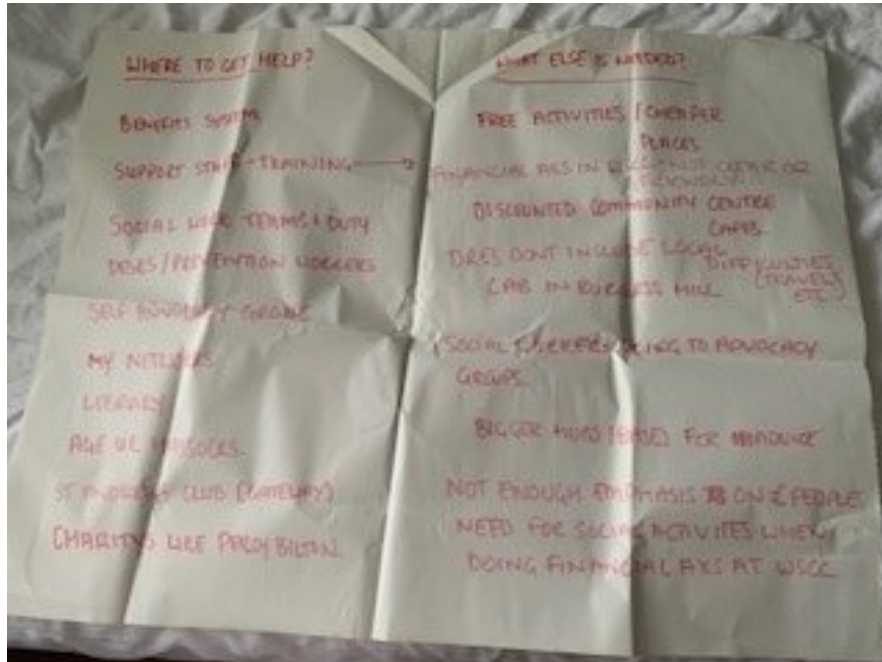 WHERE TO GET HELP?
BENEFITS SYSTEM
SUPPORT STAFF - TRAINING
SOCIAL WORK TEAMS + DUTY
PREVENTION WORKERS
SELF ADVOCACY GROUPS
MY NETWORKS
LIBRARY
AGE UK HASSOCKS
ST ANDREWS CLUB (GATEWAY)
CHARITYS LIKE PERCY BILTON
WHAT ELSE IS NEEDED?
FREE ACTIVITIES / CHEAPER
PLACES
FINANCIAL ASS IN NOT CLEAR OR
FRIENDLY
DISCOUNTED COMMUNITY CENTRE
CAFES
DRES DONT INCLUDE LOCAL DIFFICULTIES
(TRAVEL)
ETC
CAB IN BURGESS HILL
SOCIAL WORKERS GOING TO ADVOCACY
GROUPS
BIGGER HUBS FOR ADVICE
NOT ENOUGH EMPHASIS ON £ PEOPLE
NEED FOR SOCIAL ACTIVITES WHEN
DOING FINANCIAL AXS AT WSCC